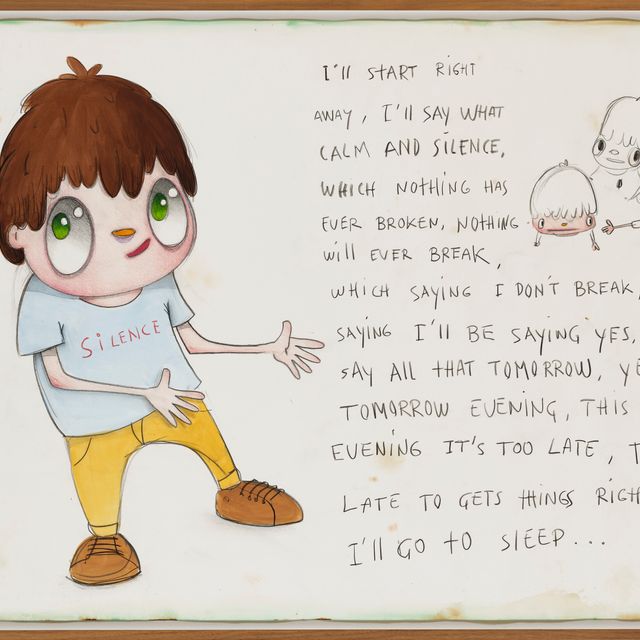 SiLENCE
I'll START RiGHT
AWAY, I'll SAY WHAT
CALM AND SiLENCE,
WHiCH NOTHiNG HAS
EVER BROKEN, NOTHiNG
Will EVER BREAK,
WHiCH SAYiNG I DON'T BREAK,
SAYiNG I'll BE SAYiNG YES,
SAY All THAT TOMORROW, YE
TOMORROW EVENiNG, THiS
EVENiNG iT'S TOO LATE, T
LATE TO GETS THiNGS RiGH
I'll GO TO SlEEP...